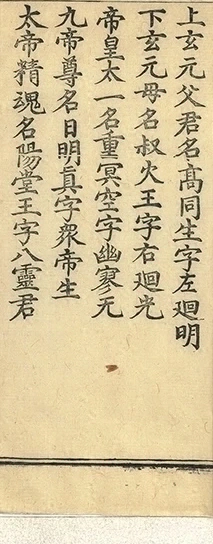 上玄元父君名髙同生字左𢌞明
下玄元母名叔火王字右𢌞光
帝皇太一名重冥空字幽寥无
九帝尊名日明真字衆帝生
太帝精魂名陽堂王字八靈君